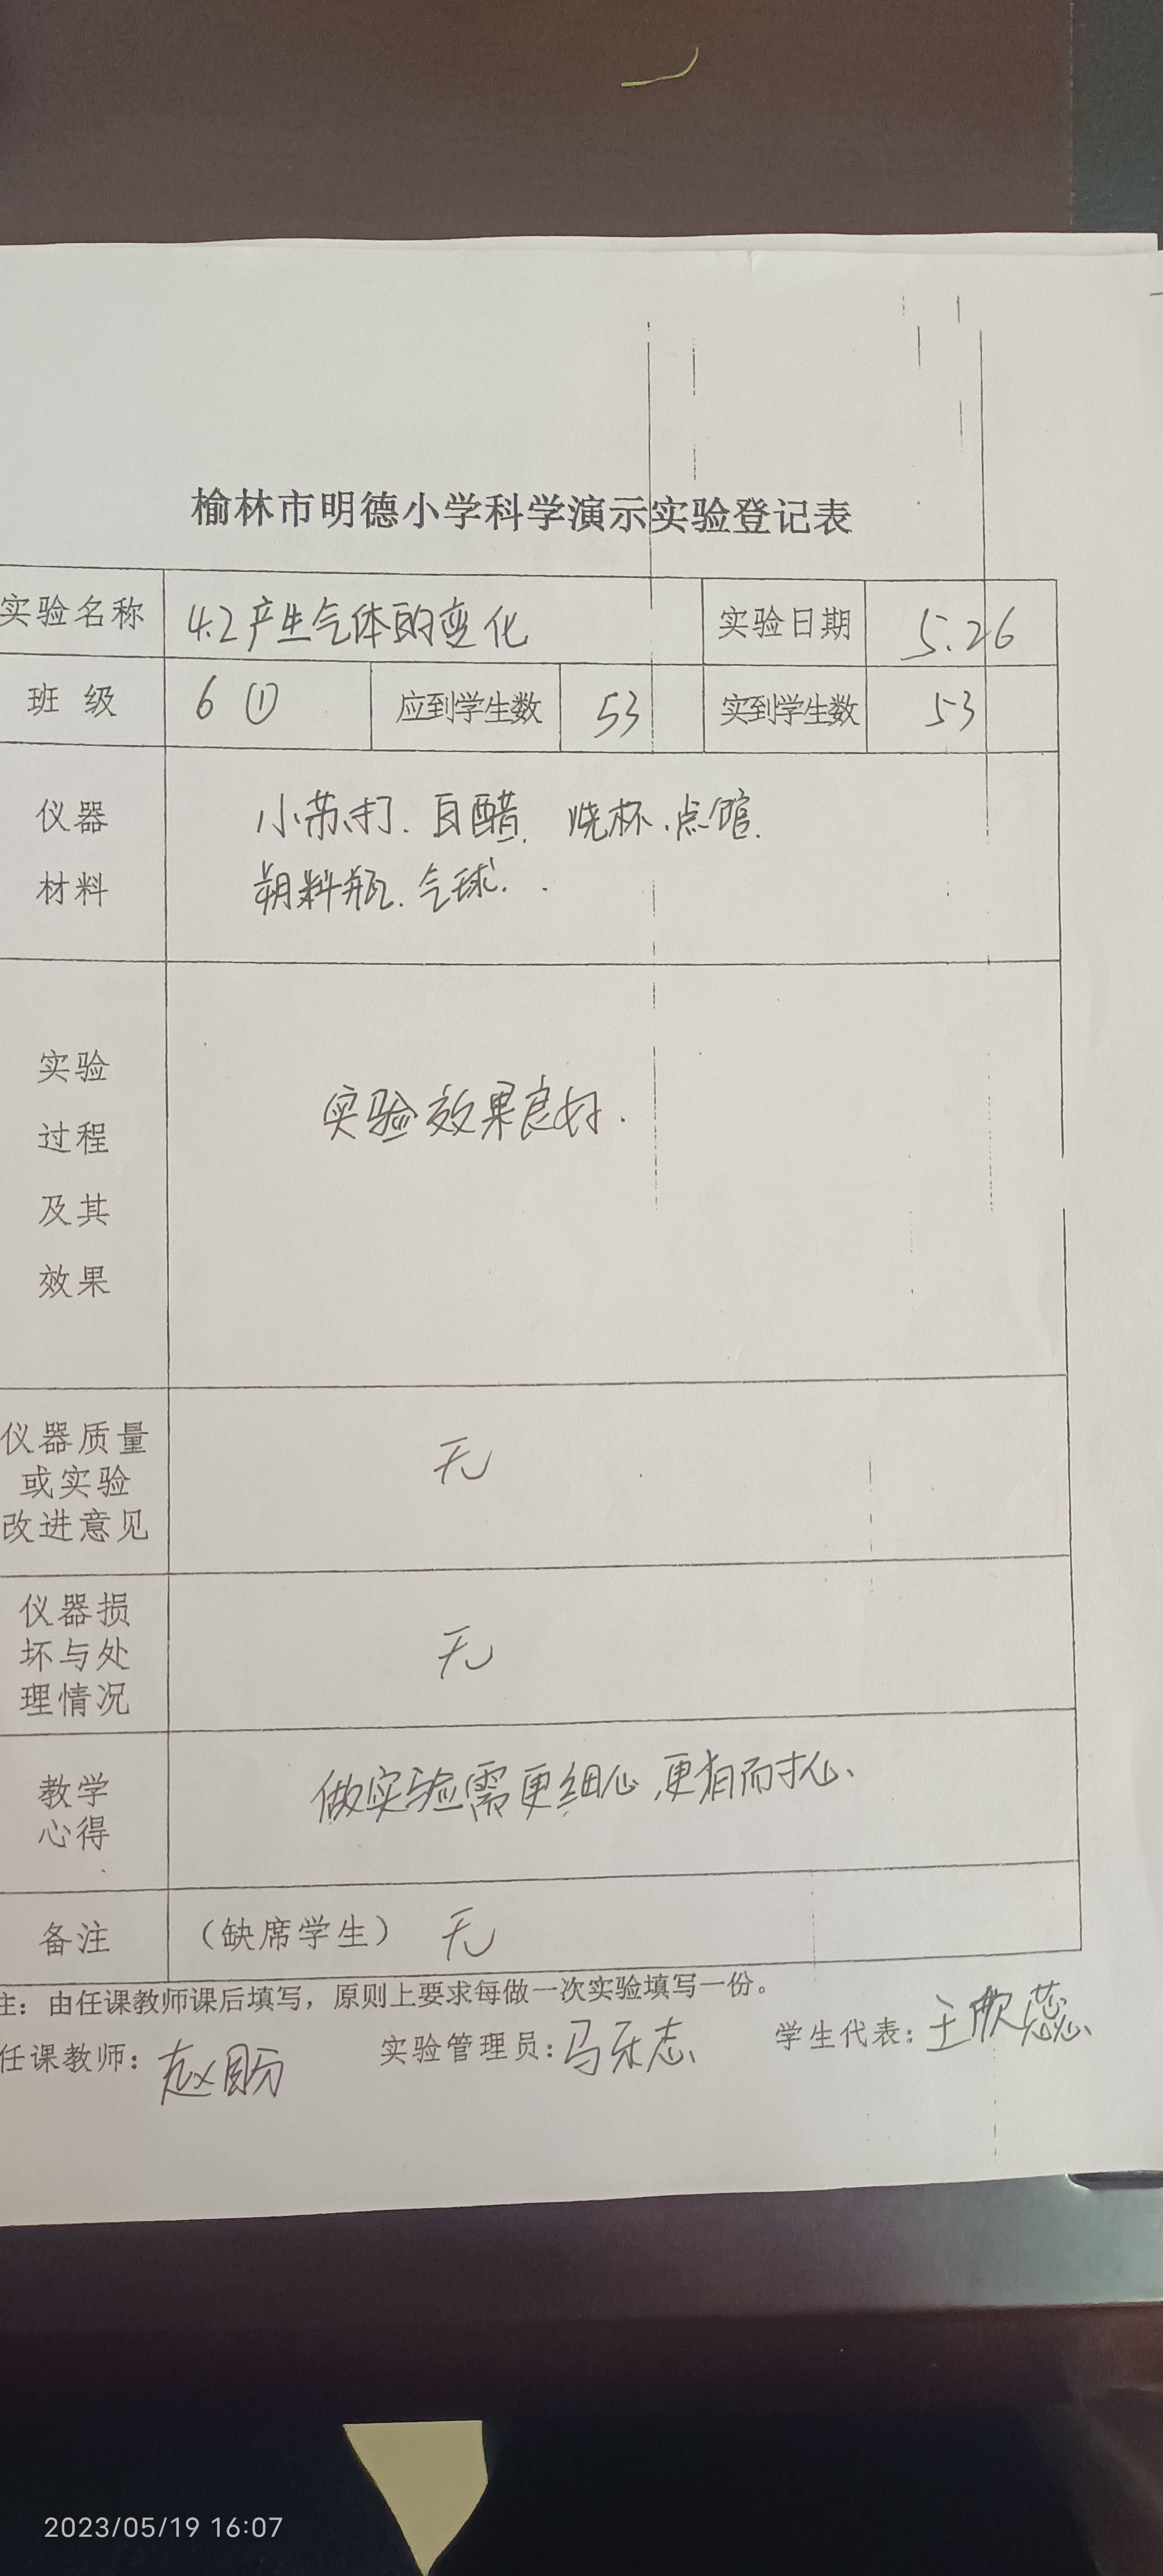 榆林市明德小学科学演示实验登记表
实验名称 4.2产生气体的变化 实验日期 5.26
班 级 6① 应到学生数 53 实到学生数 53
仪器
材料
小苏打、白醋、烧杯、点馆、
塑料瓶、气球、.
实验
过程
及其
效果
实验效果良好.
仪器质量
或实验
改进意见
无
仪器损
坏与处
理情况
无
教学
心得
做实验需更细心、更有耐心、
备注 (缺席学生) 无
注:由任课教师课后填写,原则上要求每做一次实验填写一份。
任课教师:赵盼 实验管理员:马乐志 学生代表:王歆蕊
2023/05/19 16:07